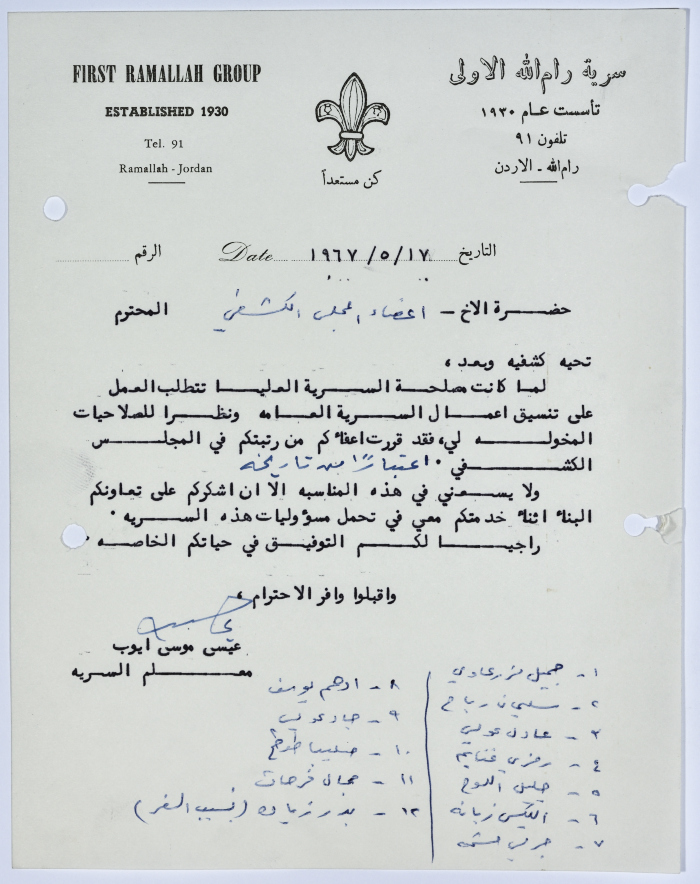 FIRST RAMALLAH GROUP
ESTABLISHED 1930
Tel. 91
Ramallah - Jordan
سرية رام الله الاولى
تأسست عام ١٩٣٠
تلفون ٩١
رام الله - الاردن
كن مستعداً
التاريخ ١٩٦٧/٥/١٧ Date الرقم
حضـــرة الاخ - اعضاء المجلس الكشفي المحترم
تحيه كشفيه وبعد ،
لما كانت مصلحة السرية العليا تتطلب العمل
على تنسيق اعمال السرية العامه ونظرا للصلاحيات
المخوله لي، فقد قررت اعفائكم من رتبتكم في المجلس
الكشفي . اعتبارًا من تاريخه
ولا يسعني في هذه المناسبه الا ان اشكركم على تعاونكم
البناء اثناء خدمتكم معي في تحمل مسؤوليات هذه السريه .
راجيا لكم التوفيق في حياتكم الخاصه .
واقبلوا وافر الاحترام ،
عيسى موسى ايوب
معلم السريه
١- جميل
٢- سليمان رباح
٣- عادل عويس
٤- رمزي غنايم
٥- خليل اللوح
٦- الكس زبانه
٧- جريس
٨- ادهم يوسف
٩- جاد عويس
١٠- صليبا طوطح
١١- جمال فرحات
١٢- بدر زياده (بسبب السفر)